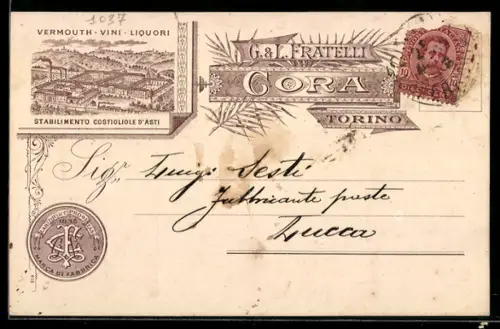 1037
VERMOUTH - VINI - LIQUORI
STABILIMENTO COSTIGLIOLE D'ASTI
G. & L. FRATELLI
CORA
TORINO
Sigr Luigi Sesti
Fabbricante paste
Lucca
MARCA DI FABBRICA